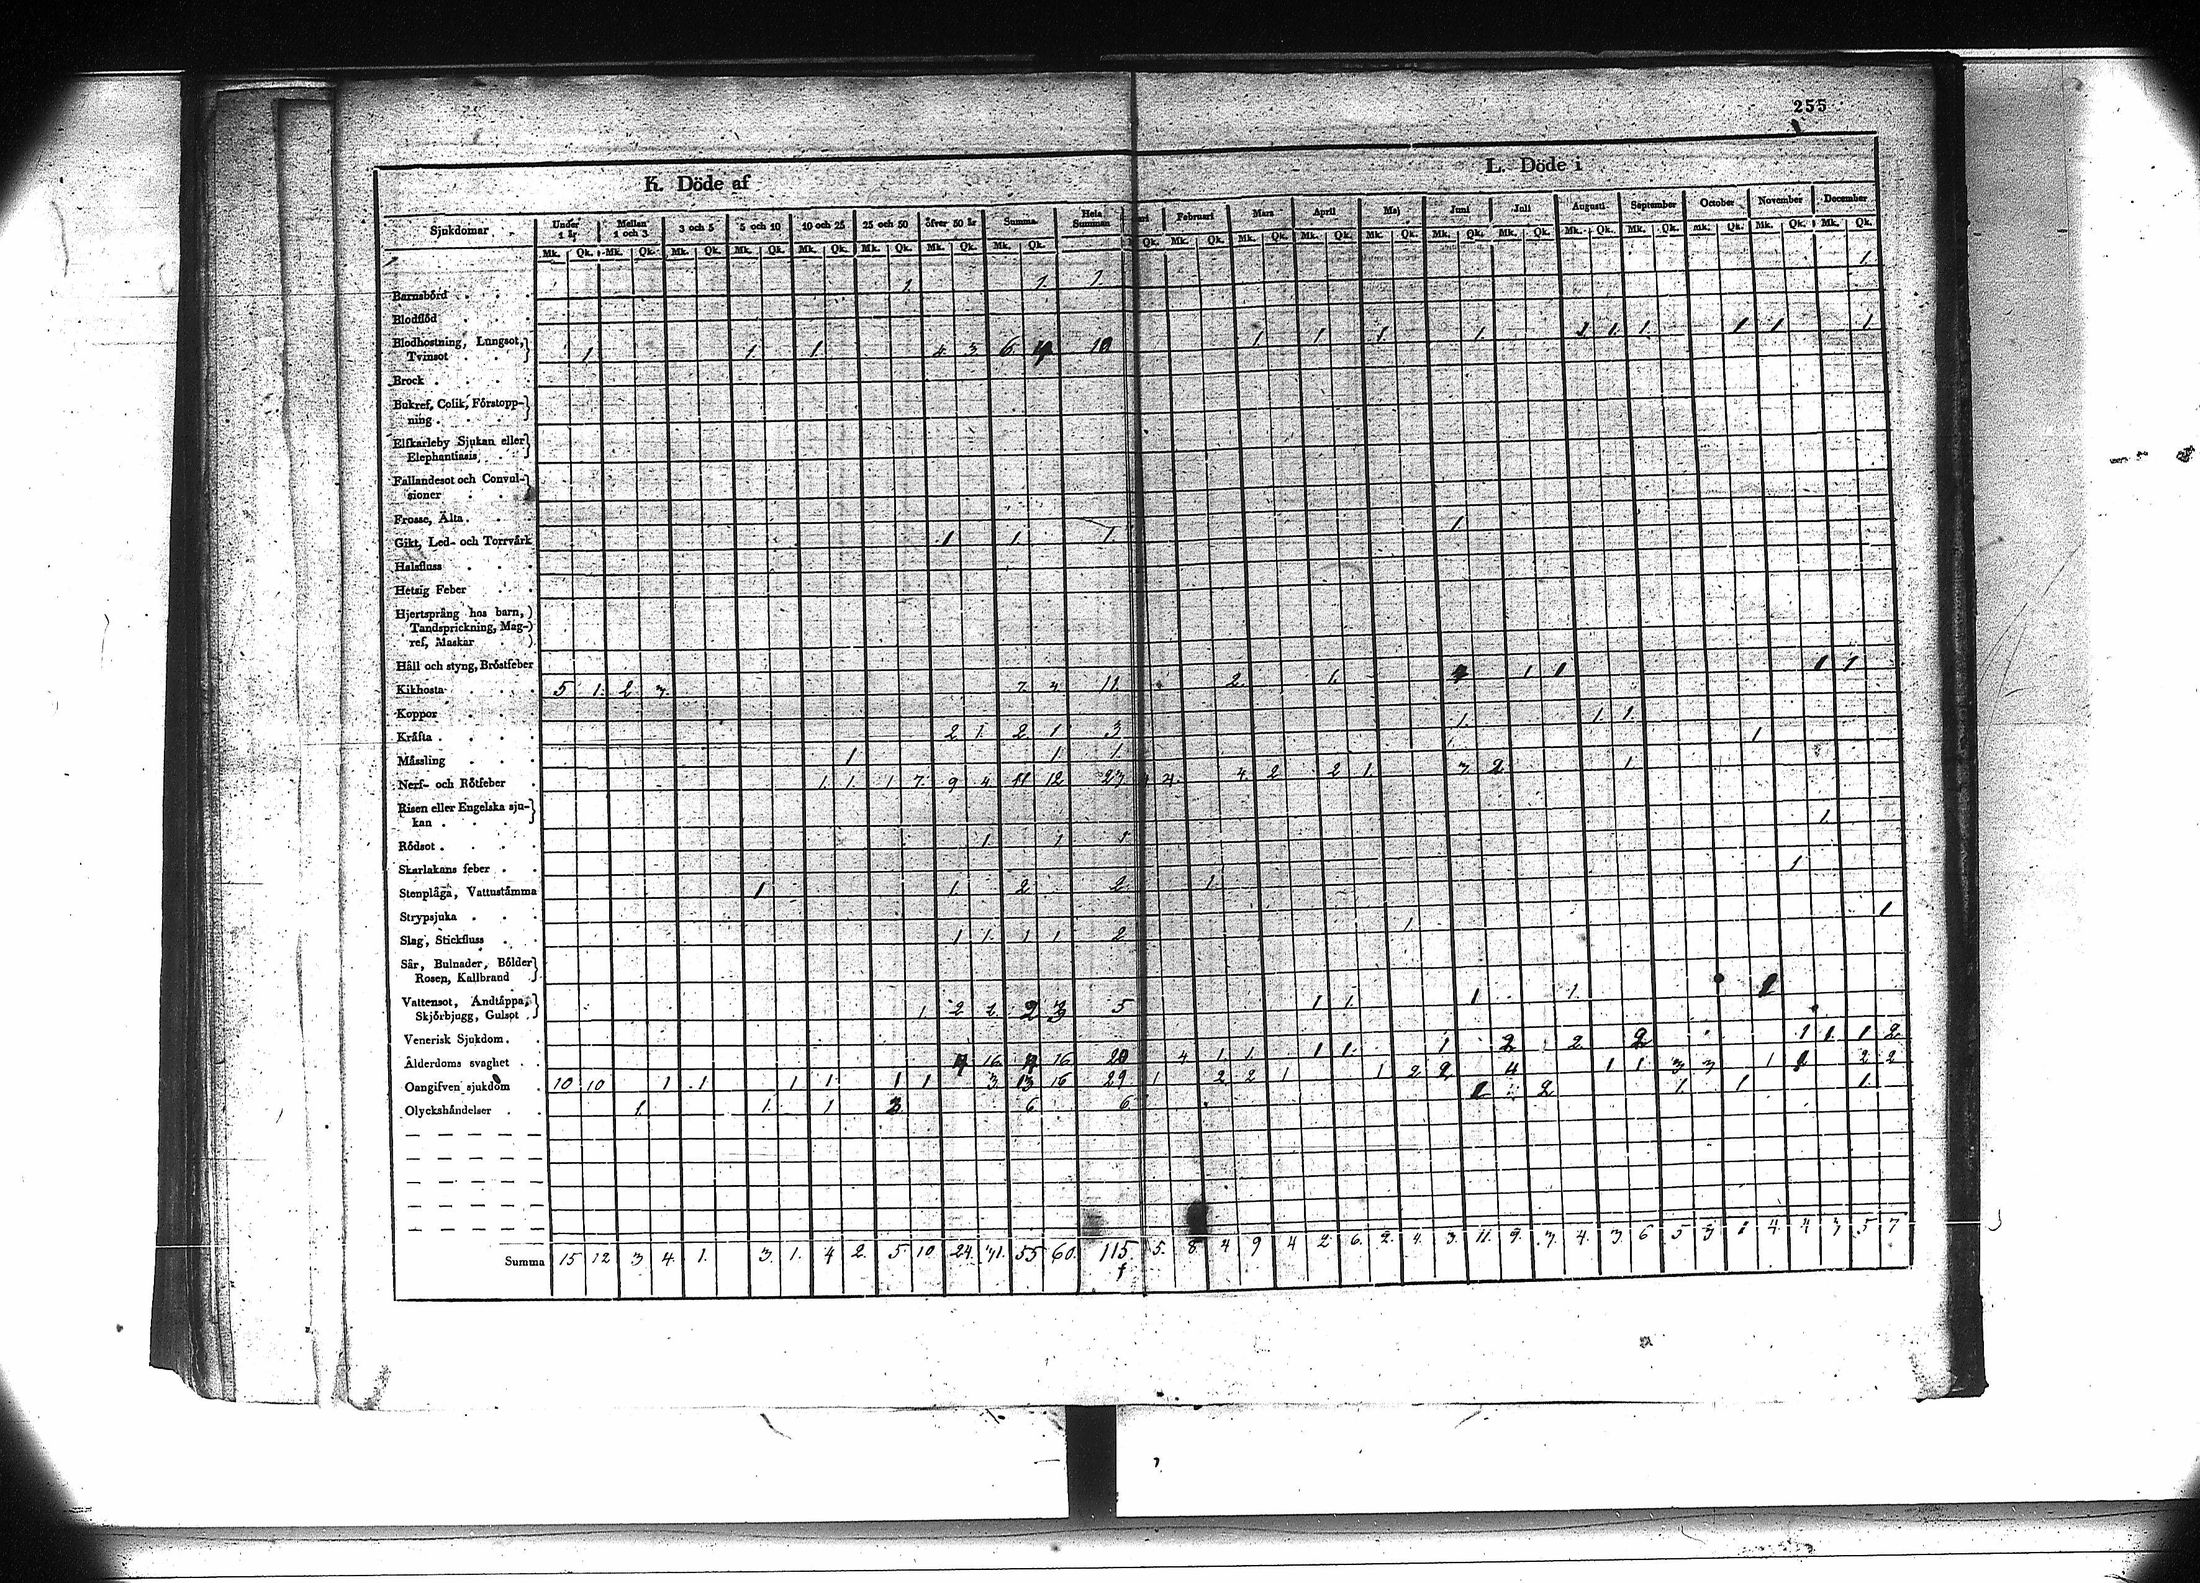 255
K. Döde af
L. Döde i
Sjukdomar Under 1 år Mellan 1 och 3 3 och 5 5 och 10 10 och 25 25 och 50 öfver 50 år Summa Hela Summan Februari Mars April Maj Juni Juli Augusti September October November December
Mk. Qk. Mk. Qk. Mk. Qk. Mk. Qk. Mk. Qk. Mk. Qk. Mk. Qk. Mk. Qk. Qk. Mk. Qk. Mk. Qk. Mk. Qk. Mk. Qk. Mk. Qk. Mk. Qk. Mk. Qk. Mk. Qk. Mk. Qk. Mk. Qk. Mk. Qk.
Barnsbörd 1 1 1 1
Blodflöd
Blodhostning, Lungsot,
Tvinsot 1 1 1 4 3 6 4 10 1 1 1 1 2 1 1 1 1 1
Brock
Bukref, Colik, Förstopp-
ning
Elfkarleby Sjukan eller
Elephantiasis
Fallandesot och Convul-
sioner
Frosse, Älta
Gikt, Led- och Torrvärk 1 1 1 1
Halsfluss
Hetsig Feber
Hjertsprång hos barn,
Tandsprickning, Mag-
ref, Maskar
Håll och styng, Bröstfeber
Kikhosta 5 1 2 3 7 4 11 2 1 1 1 1 1
Koppor
Kräfta 2 1 2 1 3 1 1 1
Mässling 1 1 1 1
Nerf- och Rötfeber 1 1 1 7 9 4 11 12 23 4 2 2 1 3 2 1
Risen eller Engelska sju-
kan
Rödsot 1 1 1 1
Skarlakans feber
Stenplåga, Vattustämma 1 1 2 2 1 1
Strypsjuka
Slag, Stickfluss 1 1 1 1 2 1 1
Sår, Bulnader, Bölder
Rosen, Kallbrand
Vattensot, Andtäppa,
Skjörbjugg, Gulsot 1 2 2 2 3 5 1 1 1 1 1
Venerisk Sjukdom
Ålderdoms svaghet 4 16 4 16 20 4 1 1 1 1 1 2 2 2 1 1 1 2
Oangifven sjukdom 10 10 1 1 1 1 1 1 3 13 16 29 1 2 2 1 1 2 2 4 1 1 3 3 1 1 2 2
Olyckshändelser 1 1 1 3 6 6 1 2 1 1 1
Summa 15 12 3 4 1 3 1 4 2 5 10 24 31 55 60 115 5 8 4 9 4 2 6 2 4 3 11 9 3 4 3 6 5 3 1 4 4 3 5 7